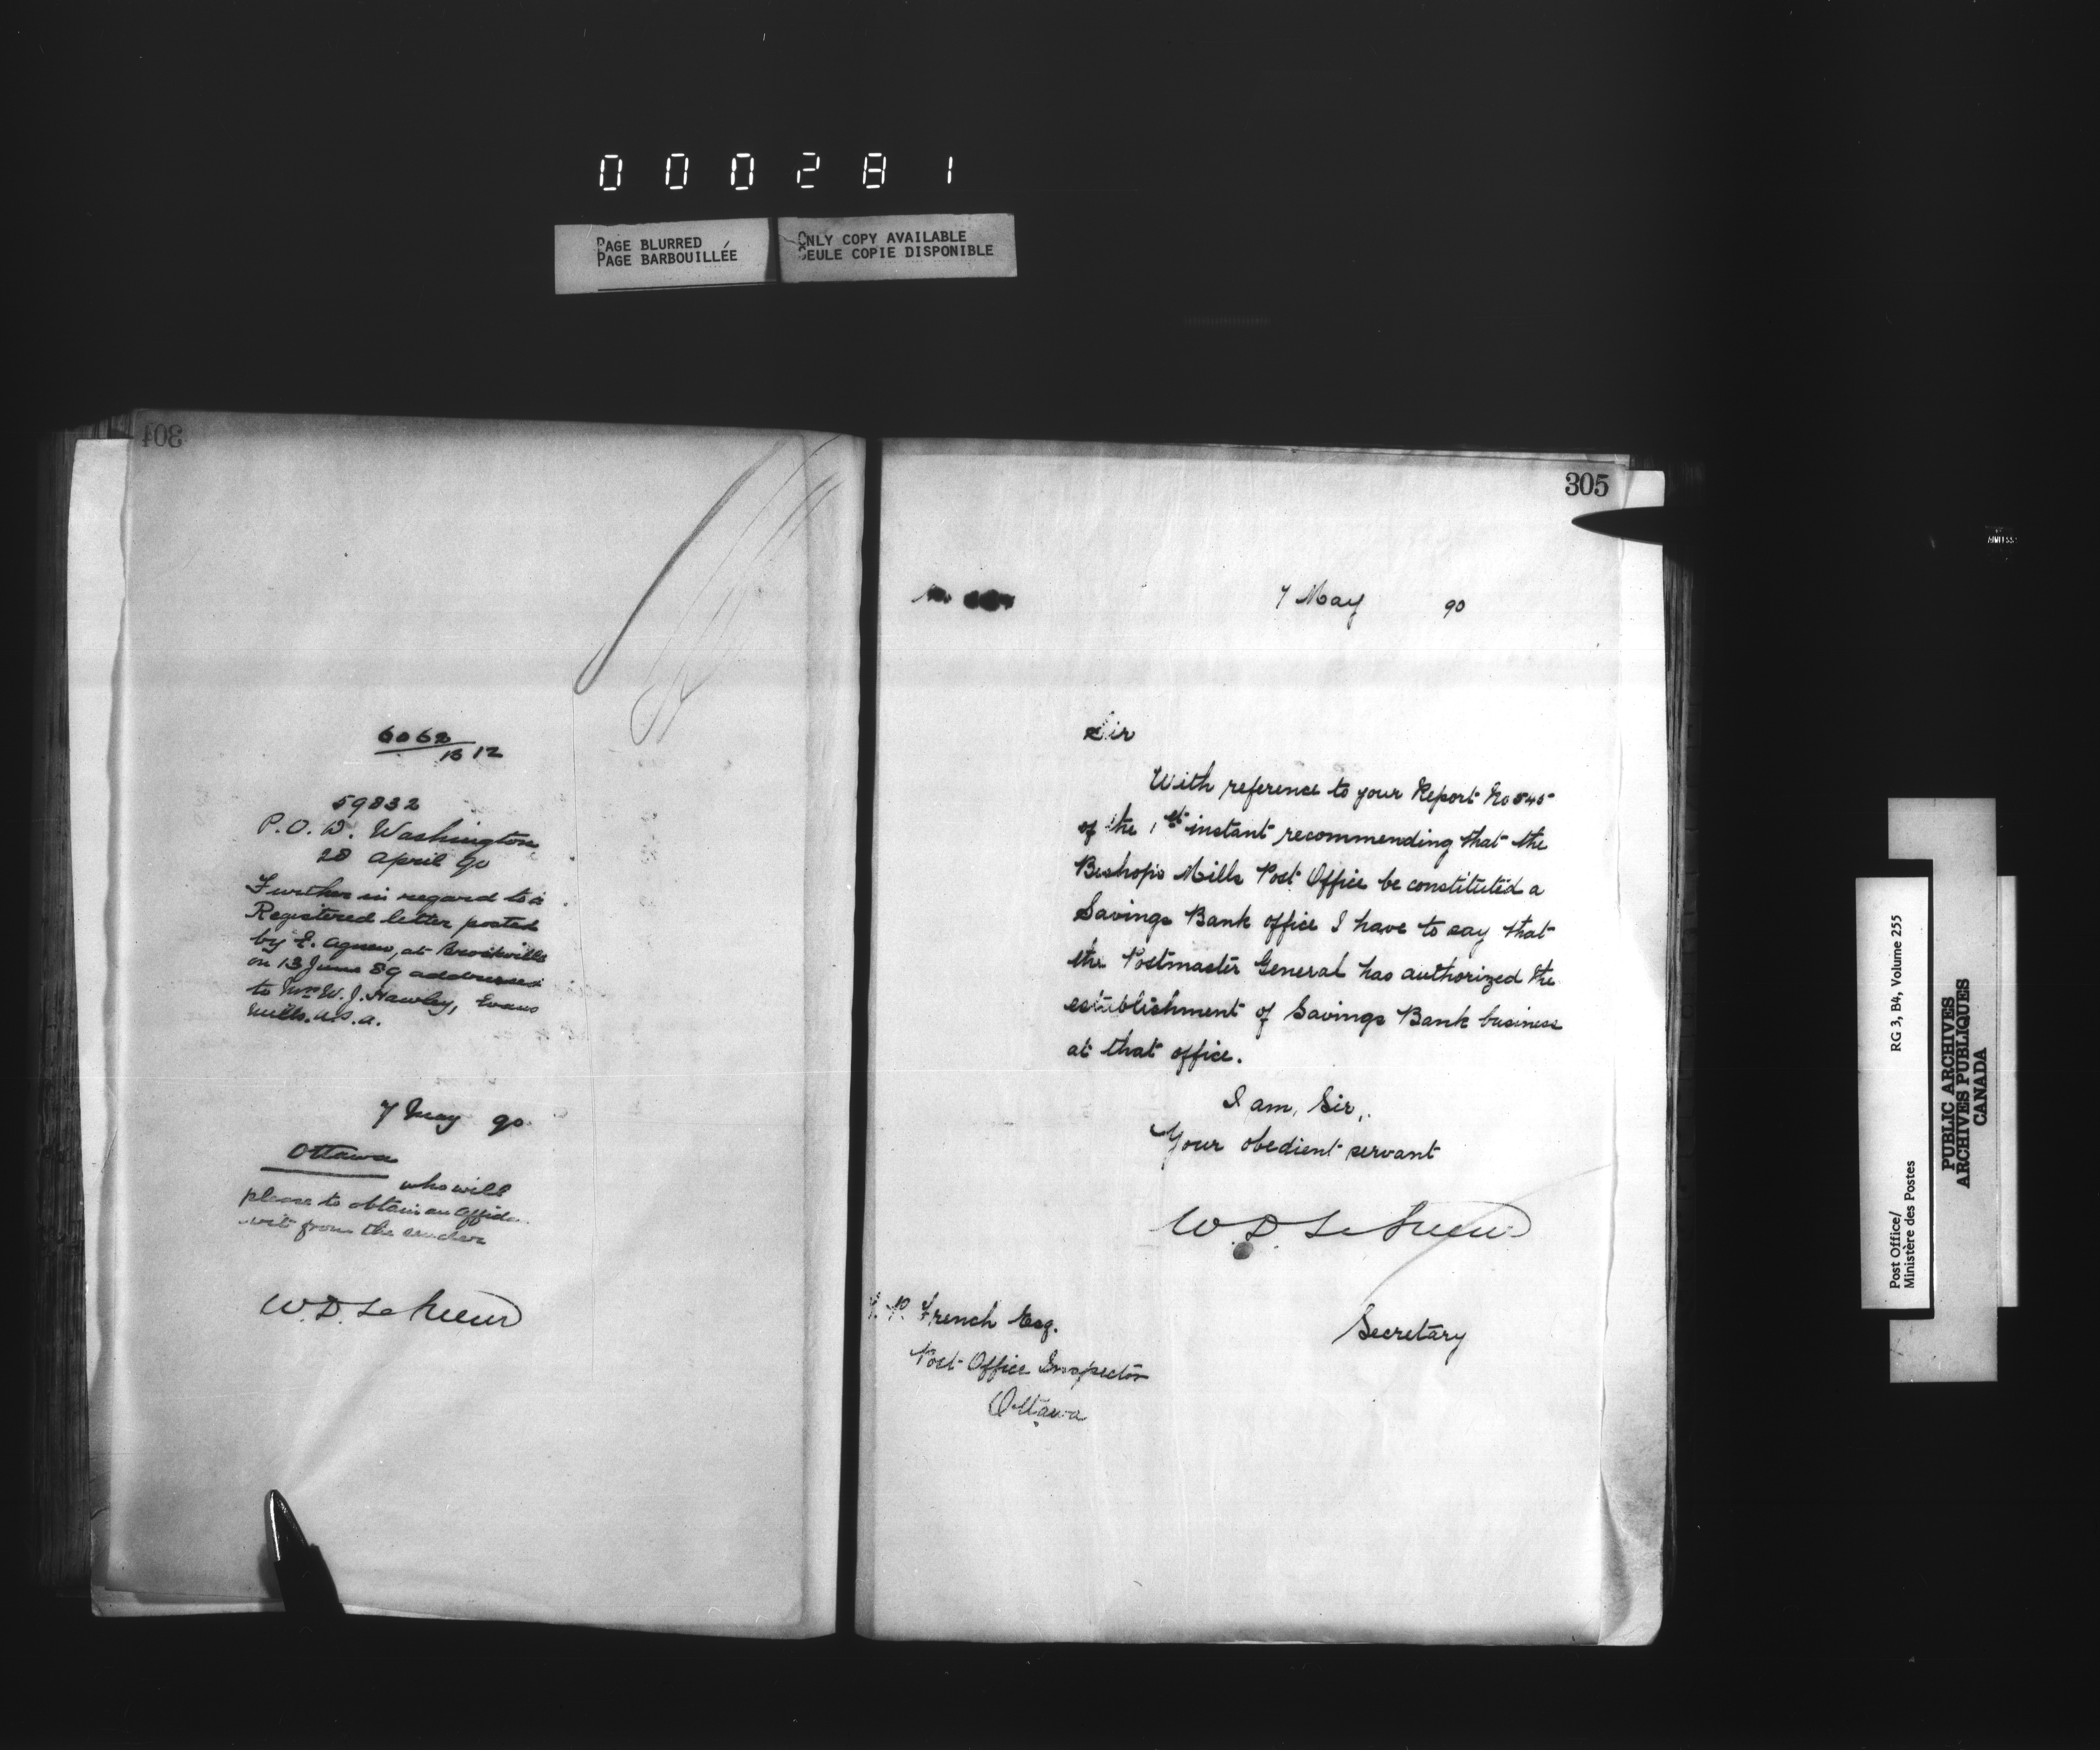 000281
PAGE BLURRED
PAGE BARBOUILLÉE
ONLY COPY AVAILABLE
SEULE COPIE DISPONIBLE
304
6068
1312
59832
P.O.D. Washington
28 April 90
Further in regard to a
Registered letter posted
by E. Agnew, at Brockville
on 13 June 89 addressed
to Mrs W. J. Hawley, Evans
Mills. U.S.A.
7 May 90
Ottawa
who will
please to obtain an affida
vit from the sender
W.D. LeSueur
305
No
7 May 90
Sir
With reference to your Report No 545
of the 1st instant recommending that the
Bishops Mills Post Office be constituted a
Savings Bank office I have to say that
the Postmaster General has authorized the
establishment of Savings Bank business
at that office.
I am, Sir,
Your obedient servant
W.D. LeSueur
Secretary
P. French Esq.
Post Office Inspector
Ottawa
Post Office/
Ministère des Postes
RG 3, B4, Volume 255
PUBLIC ARCHIVES
ARCHIVES PUBLIQUES
CANADA